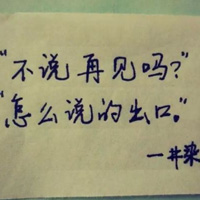 "不说再见吗?"
"怎么说的出口。"
一井染